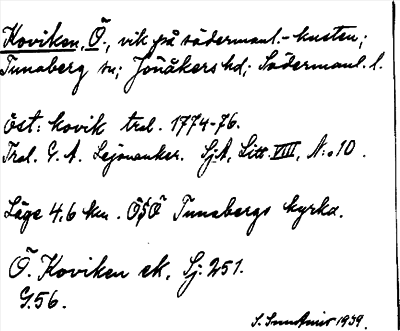 Koviken, Ö., vik på södermanl.-kusten;
Tunaberg sn; Jönåkers hd; Södermanl. l.
Öst: kovik trol. 1774-76.
Trol. G. A. Lejonanker. SjA, Litt. VIII, N:o 10.
Läge 4,6 km. ÖSÖ Tunabergs kyrka.
Ö. Koviken ek. Sj. 251.
G.56.
S. 1939.